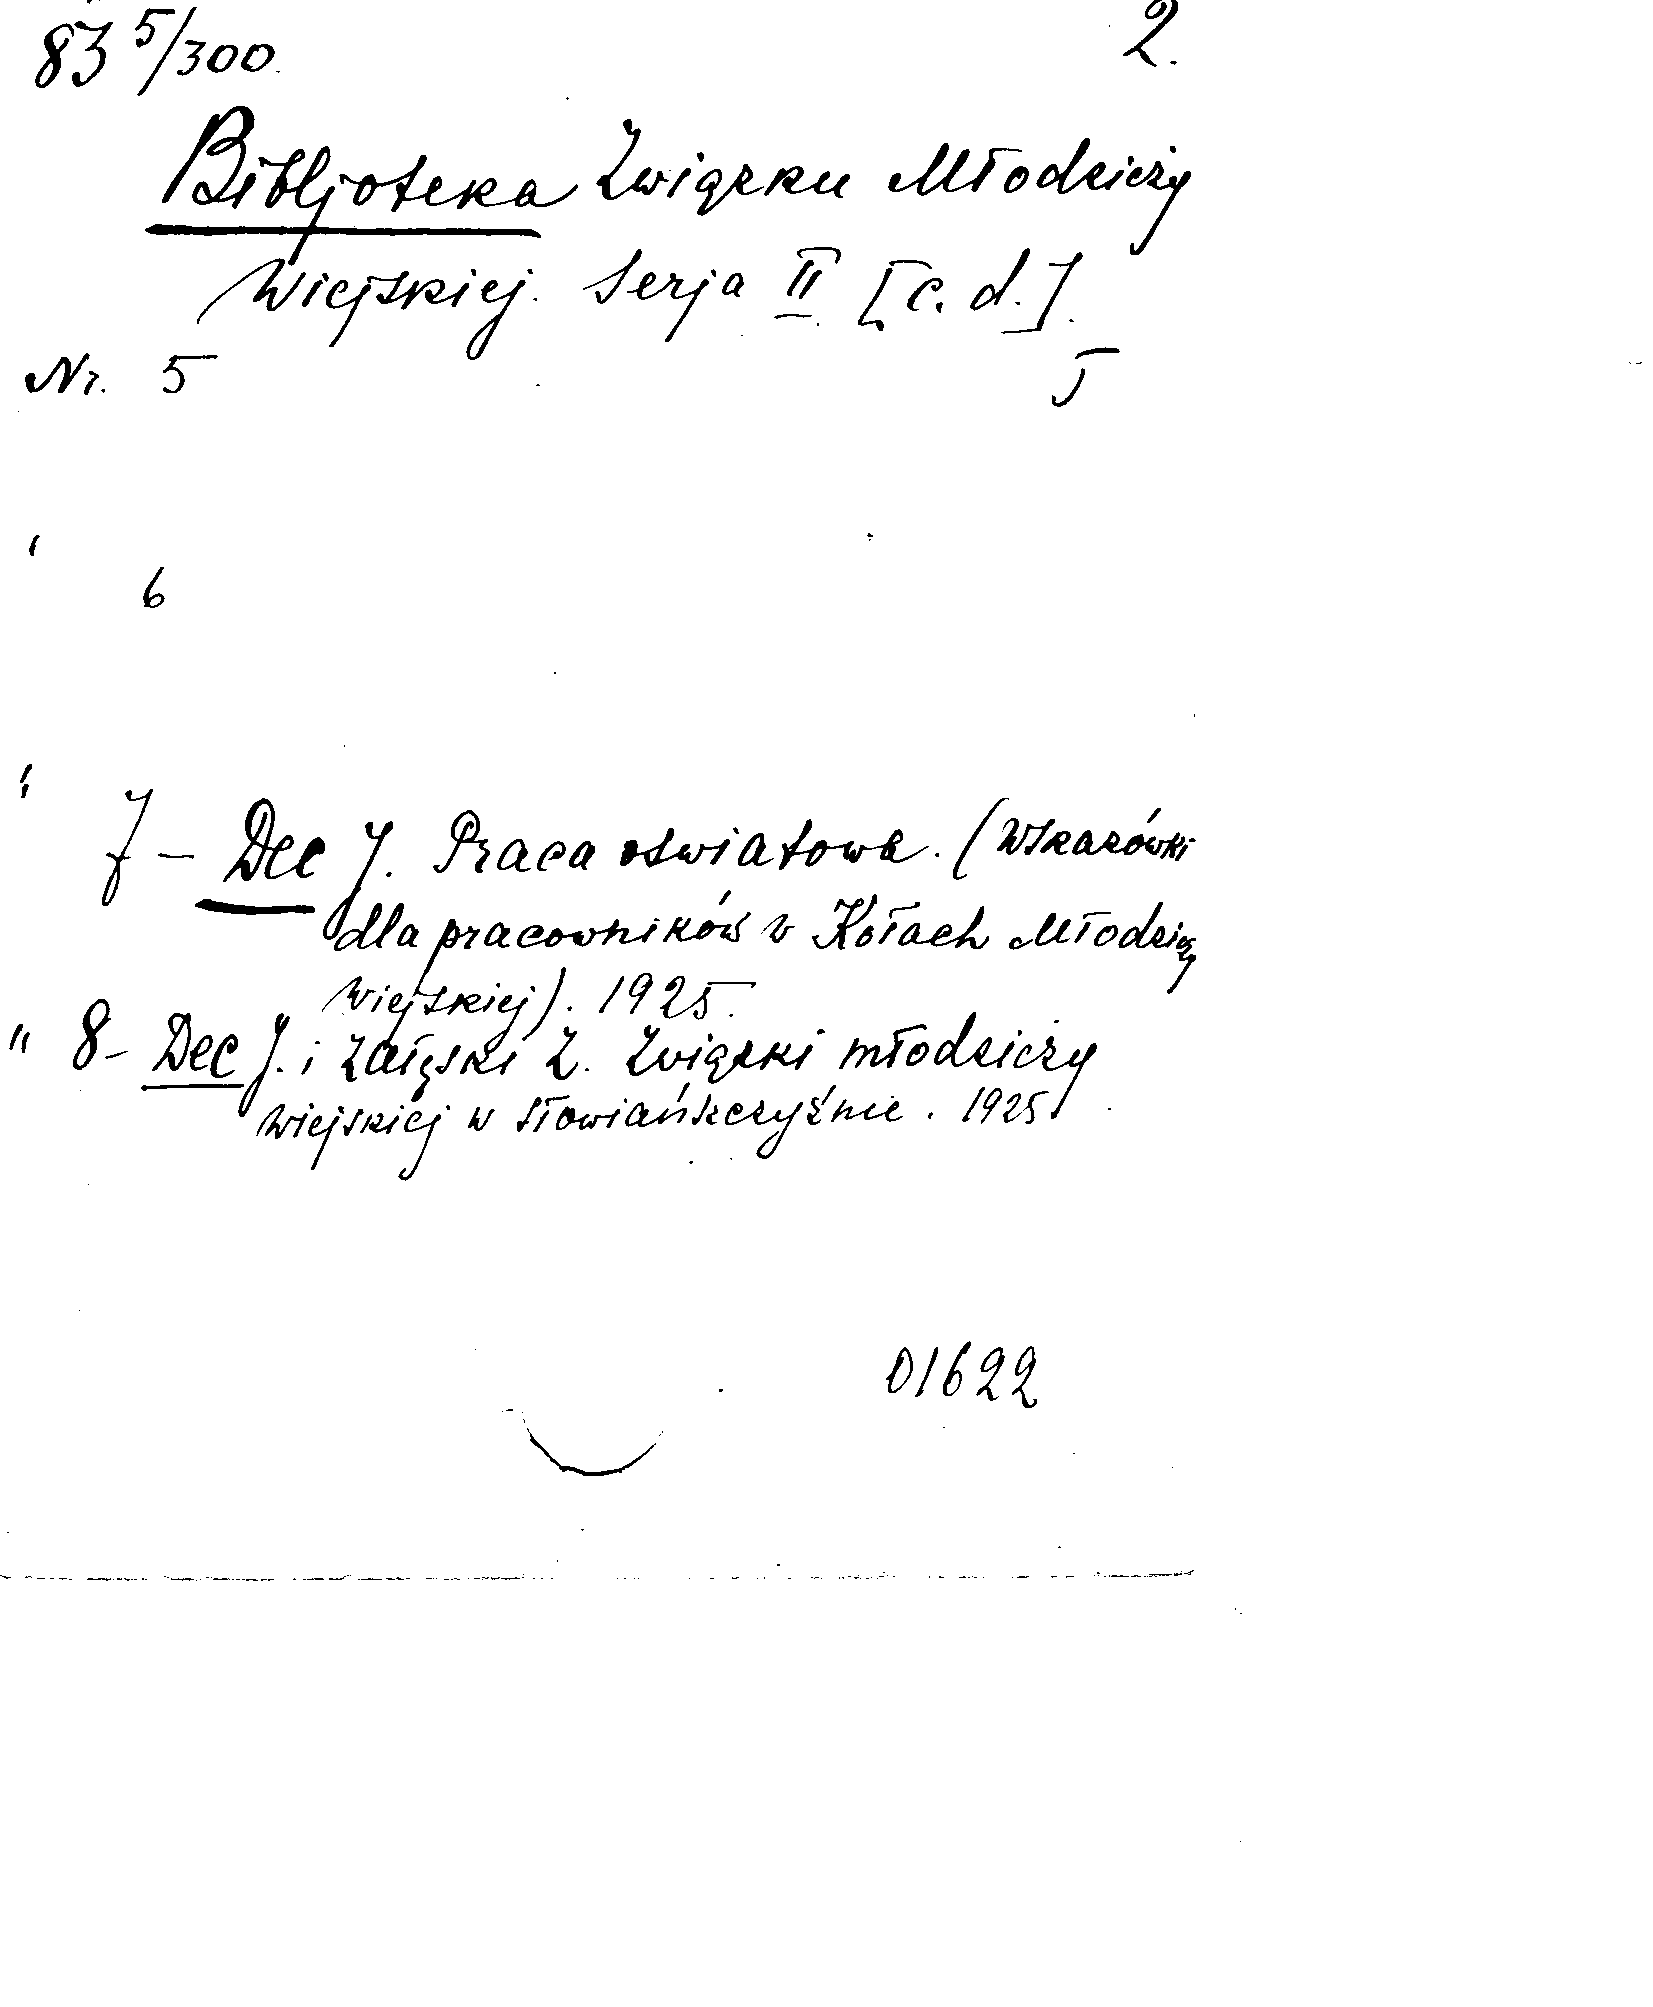 83 5/300. 2.
Bibljoteka Związku Młodzieży
Wiejskiej. Serja II [c. d.].
Nr. 5
" 6
" 7 – Dec J. Praca oświatowa. (Wskazówki
dla pracowników w Kołach Młodzieży
Wiejskiej). 1925.
" 8 – Dec J. i Załęski Z. Związki młodzieży
wiejskiej w słowiańszczyźnie. 1925
01622